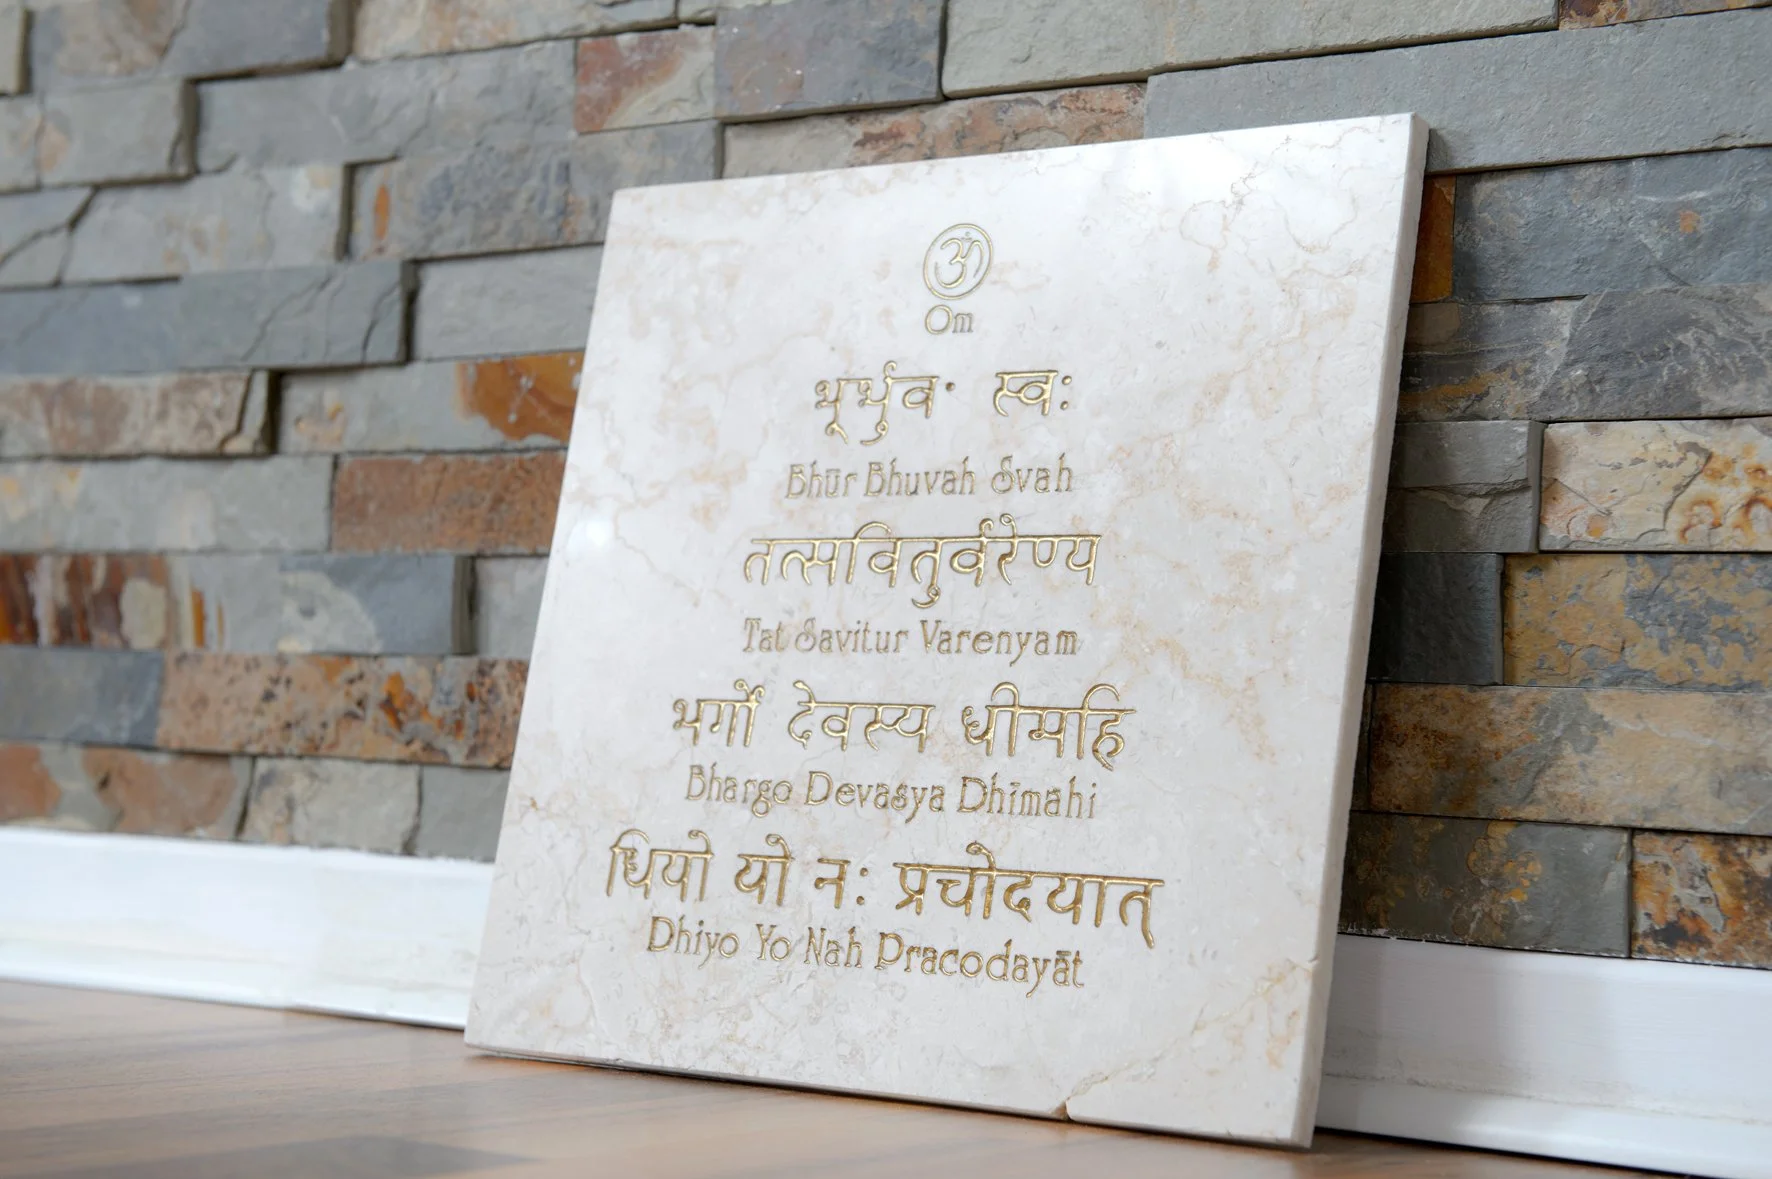 ॐ
Om
भूर्भुव· स्वः
Bhūr Bhuvah Svah
तत्सवितुर्वरेण्य
Tat Savitur Varenyam
भर्गो देवस्य धीमहि
Bhargo Devasya Dhīmahi
धियो यो नः प्रचोदयात्
Dhiyo Yo Nah Pracodayāt